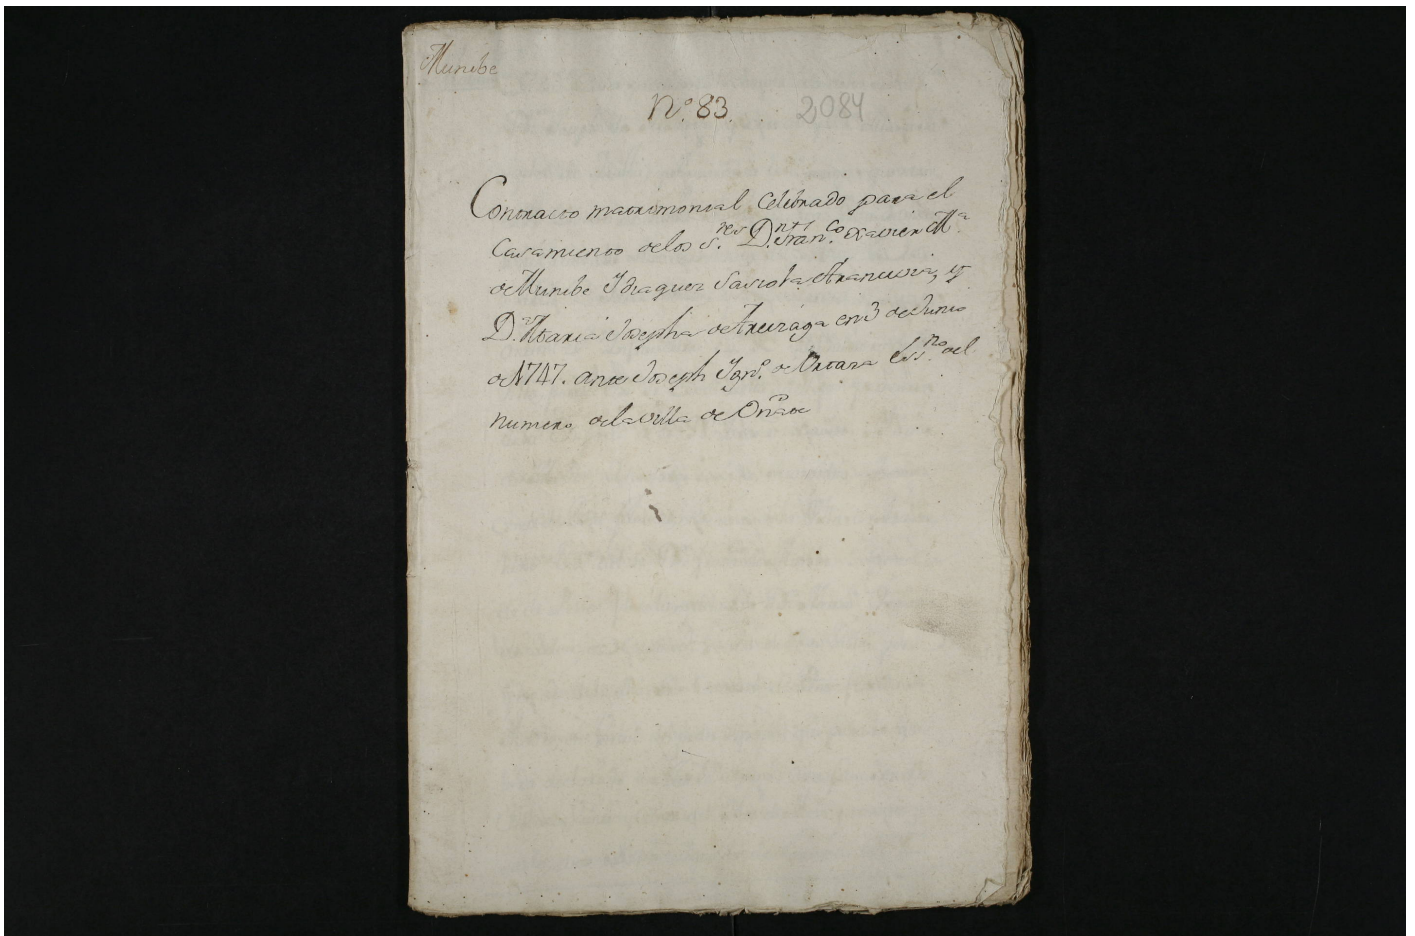 Munibe
N.º 83. 2084
Contracto matrimonial Celebrado para el
Casamiento de los S.res D.n Fran.co Xavier M.a
de Munibe Idiaquez Gaviola Aranguren, y
D.a Maria Josepha de Areizaga en 3 de Junio
de 1747. ante Joseph Ign.o de Ess.no del
numero de la Villa de Oñate